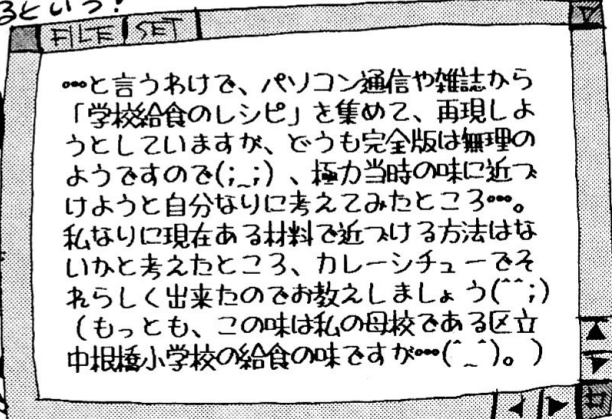 るといっ?
FILE SET
…と言うわけで、パソコン通信や雑誌から
「学校給食のレシピ」を集めて、再現しよ
うとしていますが、どうも完全版は無理の
ようですので(;_;)、極力当時の味に近づ
けようと自分なりに考えてみたところ…。
私なりに現在ある材料で近づける方法はな
いかと考えたところ、カレーシチューでそ
れらしく出来たのでお教えしましょう(^^;)
(もっとも、この味は私の母校である区立
中根橋小学校の給食の味ですが…(^_^)。)